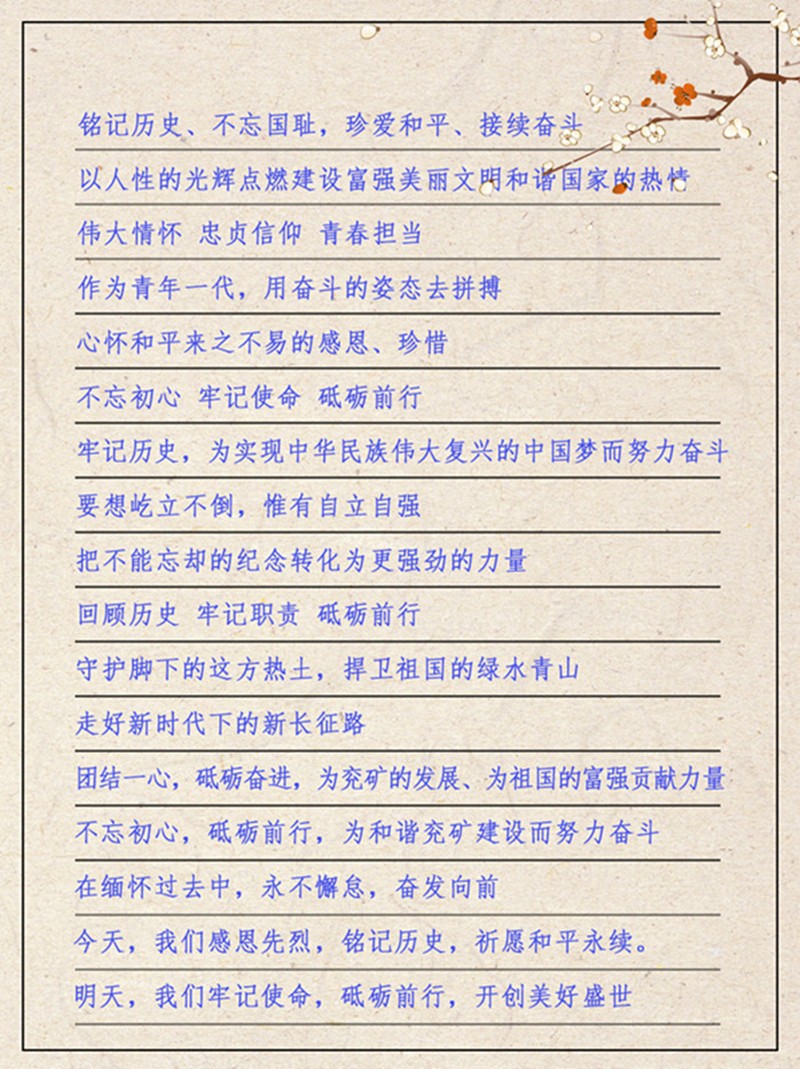 铭记历史、不忘国耻，珍爱和平、接续奋斗
以人性的光辉点燃建设富强美丽文明和谐国家的热情
伟大情怀 忠贞信仰 青春担当
作为青年一代，用奋斗的姿态去拼搏
心怀和平来之不易的感恩、珍惜
不忘初心 牢记使命 砥砺前行
牢记历史，为实现中华民族伟大复兴的中国梦而努力奋斗
要想屹立不倒，惟有自立自强
把不能忘却的纪念转化为更强劲的力量
回顾历史 牢记职责 砥砺前行
守护脚下的这方热土，捍卫祖国的绿水青山
走好新时代下的新长征路
团结一心，砥砺奋进，为兖矿的发展、为祖国的富强贡献力量
不忘初心，砥砺前行，为和谐兖矿建设而努力奋斗
在缅怀过去中，永不懈怠，奋发向前
今天，我们感恩先烈，铭记历史，祈愿和平永续。
明天，我们牢记使命，砥砺前行，开创美好盛世